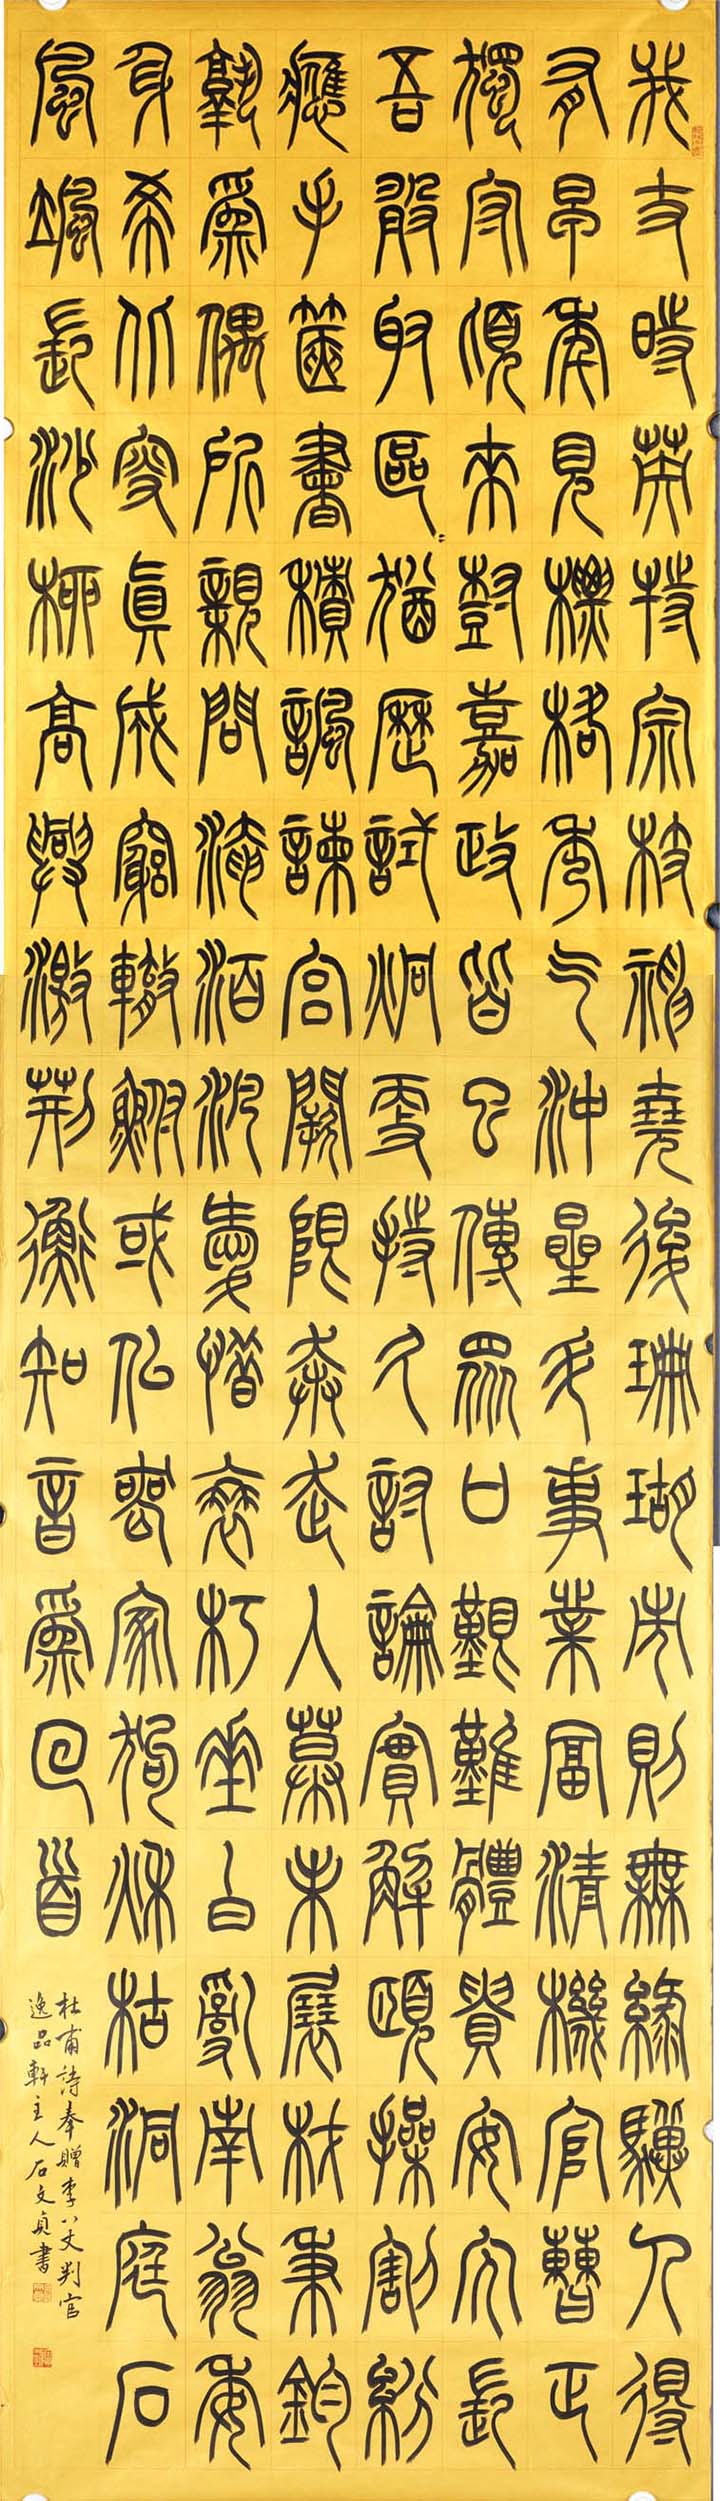 我丈時英特宗枝神堯後珊瑚市則無騄驥人得
有早年見標格秀气沖星斗事業富清機官曹正
獨守頃來樹嘉政皆已傳眾口艱難體貴安冗長
吾敢取區〻猶歷試炯更持久討論實解頤操割紛
應手篋書積諷諫宮闕限奔走入幕未展材秉鈞
孰為偶所親問淹泊汎愛惜衰朽垂白亂南翁委
身希北叟真成窮轍鮒或似喪家狗秋枯洞庭石
風颯長沙柳高興激荊衡知音為回首
杜甫詩奉贈李八丈判官
逸品軒主人石文貞書